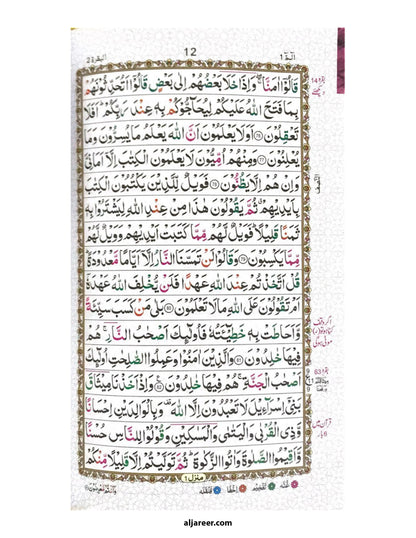 البقرة ٢
12
الٓمّٓ ١
قَالُوْٓا اٰمَنَّا ۖۚ وَاِذَا خَلَا بَعْضُهُمْ اِلٰى بَعْضٍ قَالُوْٓا اَتُحَدِّثُوْنَهُمْ
بِمَا فَتَحَ اللّٰهُ عَلَيْكُمْ لِيُحَآجُّوْكُمْ بِهٖ عِنْدَ رَبِّكُمْ ؕ اَفَلَا
تَعْقِلُوْنَ ﴿۷۶﴾ اَوَلَا يَعْلَمُوْنَ اَنَّ اللّٰهَ يَعْلَمُ مَا يُسِرُّوْنَ وَمَا
يُعْلِنُوْنَ ﴿۷۷﴾ وَمِنْهُمْ اُمِّيُّوْنَ لَا يَعْلَمُوْنَ الْكِتٰبَ اِلَّآ اَمَانِيَّ
وَاِنْ هُمْ اِلَّا يَظُنُّوْنَ ﴿۷۸﴾ فَوَيْلٌ لِّلَّذِيْنَ يَكْتُبُوْنَ الْكِتٰبَ
بِاَيْدِيْهِمْ ۗ ثُمَّ يَقُوْلُوْنَ هٰذَا مِنْ عِنْدِ اللّٰهِ لِيَشْتَرُوْا بِهٖ
ثَمَنًا قَلِيْلًا ؕ فَوَيْلٌ لَّهُمْ مِّمَّا كَتَبَتْ اَيْدِيْهِمْ وَوَيْلٌ لَّهُمْ
مِّمَّا يَكْسِبُوْنَ ﴿۷۹﴾ وَقَالُوْا لَنْ تَمَسَّنَا النَّارُ اِلَّآ اَيَّامًا مَّعْدُوْدَةً ؕ
قُلْ اَتَّخَذْتُمْ عِنْدَ اللّٰهِ عَهْدًا فَلَنْ يُّخْلِفَ اللّٰهُ عَهْدَهٗٓ
اَمْ تَقُوْلُوْنَ عَلَى اللّٰهِ مَا لَا تَعْلَمُوْنَ ﴿۸۰﴾ بَلٰى مَنْ كَسَبَ سَيِّئَةً
وَّاَحَاطَتْ بِهٖ خَطِيْٓـَٔتُهٗ فَاُولٰٓئِكَ اَصْحٰبُ النَّارِ ۚ هُمْ
فِيْهَا خٰلِدُوْنَ ﴿۸۱﴾ وَالَّذِيْنَ اٰمَنُوْا وَعَمِلُوا الصّٰلِحٰتِ اُولٰٓئِكَ
اَصْحٰبُ الْجَنَّةِ ۚ هُمْ فِيْهَا خٰلِدُوْنَ ﴿۸۲﴾ وَاِذْ اَخَذْنَا مِيْثَاقَ
بَنِيْٓ اِسْرَآءِيْلَ لَا تَعْبُدُوْنَ اِلَّا اللّٰهَ ۟ وَبِالْوَالِدَيْنِ اِحْسَانًا
وَّذِي الْقُرْبٰى وَالْيَتٰمٰى وَالْمَسٰكِيْنِ وَقُوْلُوْا لِلنَّاسِ حُسْنًا
وَّاَقِيْمُوا الصَّلٰوةَ وَاٰتُوا الزَّكٰوةَ ؕ ثُمَّ تَوَلَّيْتُمْ اِلَّا قَلِيْلًا مِّنْكُمْ
منزل ١
وَاَنْتُمْ مُّعْرِضُوْنَ
aljareer.com